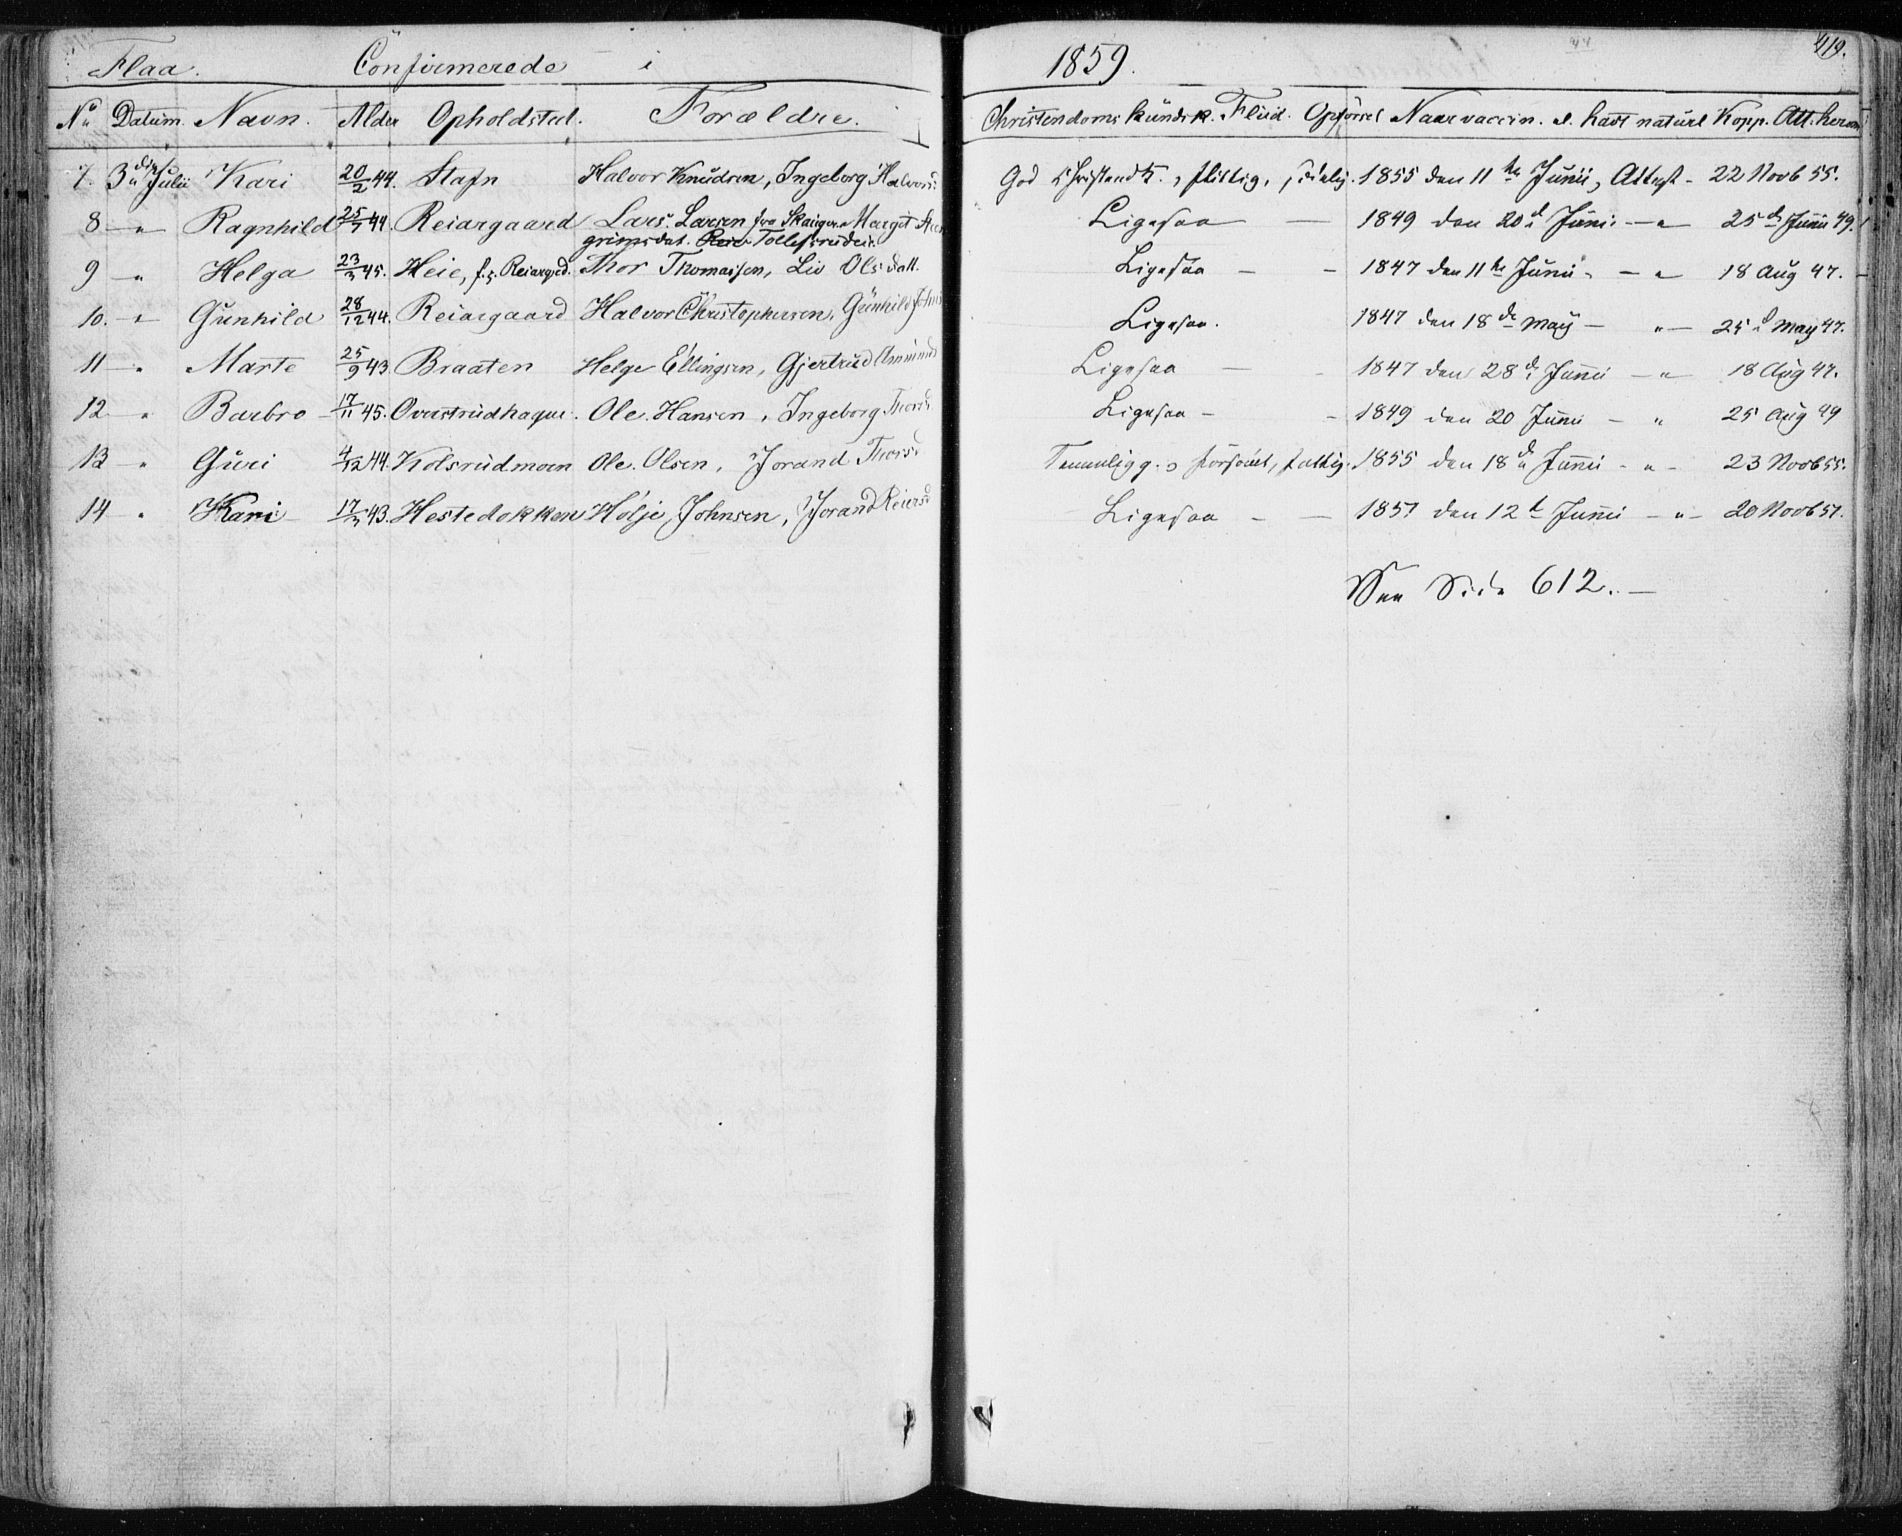 Flaa. Confirmerede i 1859. 419.
No Datum. Navn. Alder Opholdsted. Forældre. Christendoms kundsk. Flid. Opførsel Naar vaccin. el. havt naturl Kopp. Att. herom
7. 3die Julii Kari 20/2 44. Stafn Halvor Knudsen, Ingeborg Halvors God Christend K., flittig, sædelig. 1855 den 11te Junii, Attest - 22 Novb 55.
8 — " Ragnhild 25/7 44. Reiargaard Lars Larsen fra Skaiger. Margit Sten Ligesaa — 1849 den 20d Junii — " 25de Junii 49.
grimsdat. Tollefsrudeie.
9 — " Helga 23/3 45. Heie, f. Reiargrd. Thor Thomassen, Liv Olsdatt. Ligesaa — - 1847 den 11te Junii - — " 18 Aug 47.
10. — " Gunhild 28/12 44. Reiargaard Halvor Christophersen, Günhild Johns Ligesaa. 1847 den 18de May — " — 25d May 47.
11 — " Marte 25/9 43. Braaten Helge Ellingsen, Gjertrud Amunds Ligesaa — - 1847 den 28de Junii — " 18 Aug 47.
12 — " Barbro 17/11 45. Overstrudhagen. Ole Hansen, Ingeborg Thorsd Ligesaa - - 1849 den 20 Junii - " 25 Aug 49
13 — " Guri 4/12 44. Kolsrudmoen Ole Olsen, Jorand Thorsd Temmelig g. 1855 den 18de Junii - " - 23 Novb 55.
14 " Kari 17/7 43. Hestedokken Holje Johnsen, Jorand Reiersd Ligesaa - — 1857 den 12t Junii — " — 20 Novb 57.
See Side 612. —